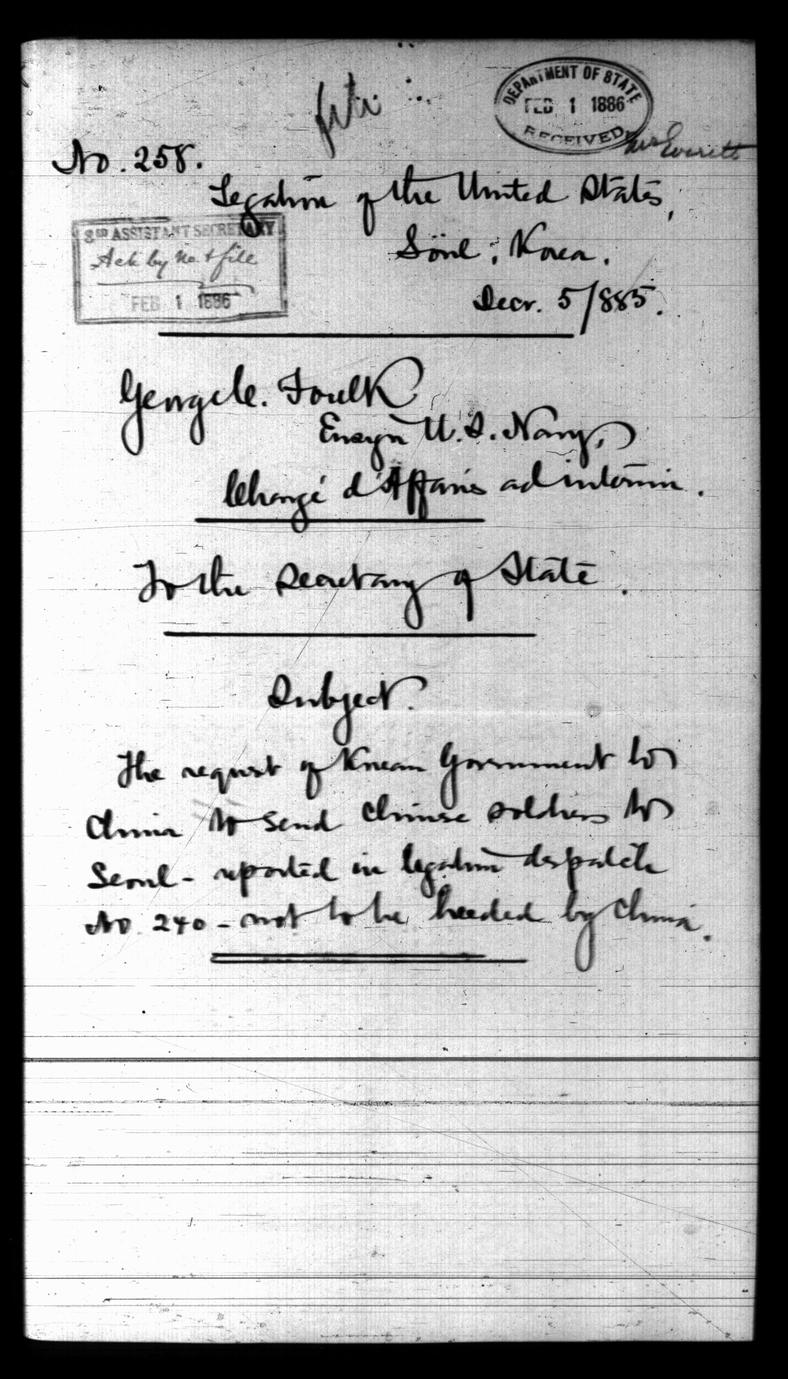 file
DEPARTMENT OF STATE
FEB 1 1886
RECEIVED
Mr Everett
No. 258.
Legation of the United States,
Söul, Korea.
3RD ASSISTANT SECRETARY
Ack by No. & file
FEB 1 1886
Decr. 5/885.
George C. Foulk
Ensign U.S. Navy,
Chargé d'Affaires ad interim.
To the Secretary of State.
Subject.
The request of Korean Government to
China to send Chinese soldiers to
Seoul - reported in legation despatch
No. 240 - not to be heeded by China.